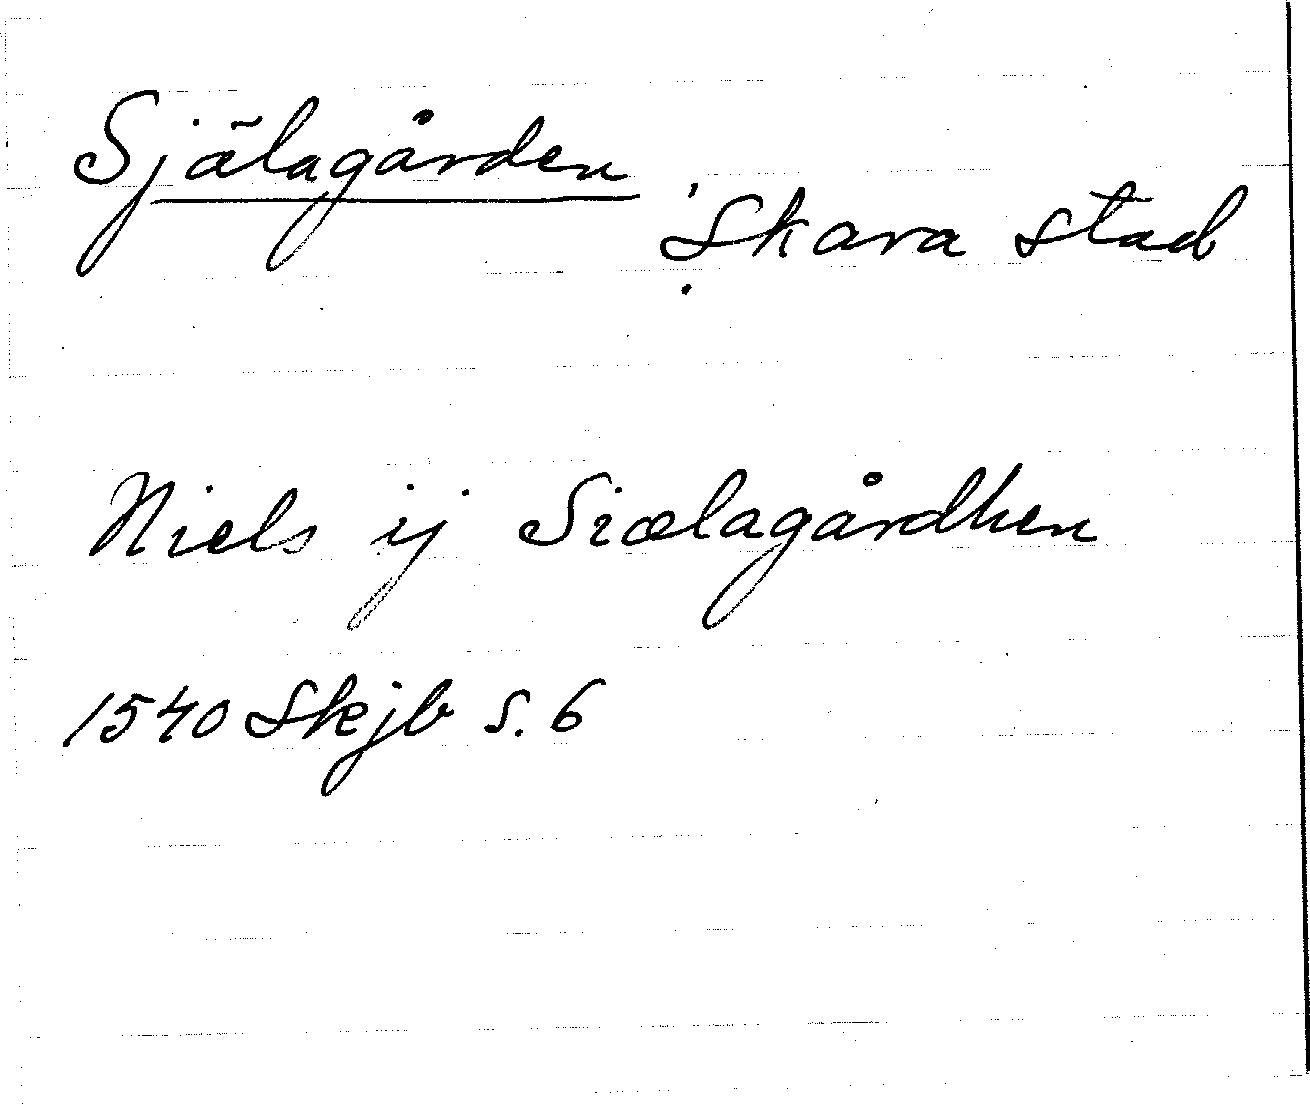 Själagården
Skara stad
Niels ij Siælagårdhen
1540 Skjb s. 6